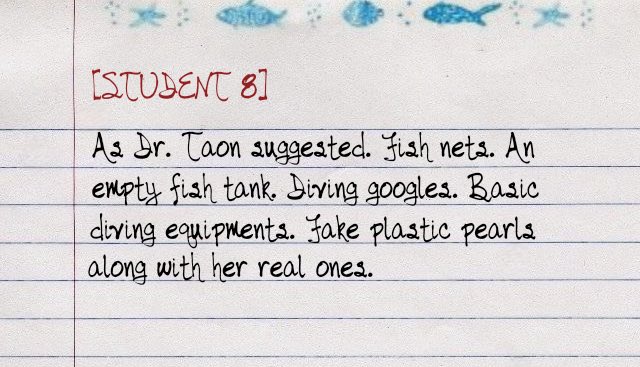 [STUDENT 8]
As Dr. Taon suggested. Fish nets. An
empty fish tank. Diving googles. Basic
diving equipments. Fake plastic pearls
along with her real ones.